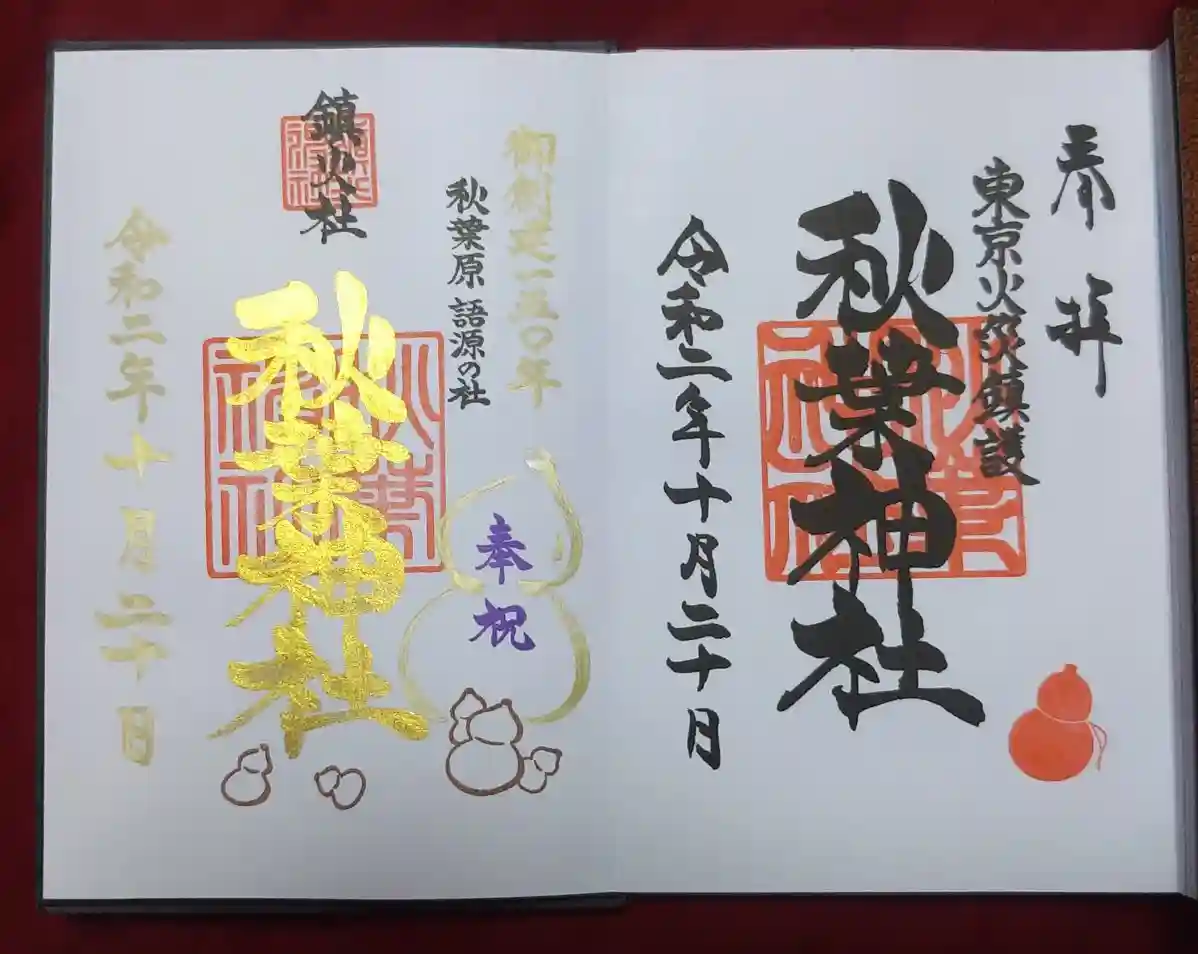 奉拝
東京火災鎮護
秋葉神社
令和二年十月二十日
御創建一五〇年
秋葉原 語源の社
奉祝
鎮火社
秋葉神社
令和二年十月二十日